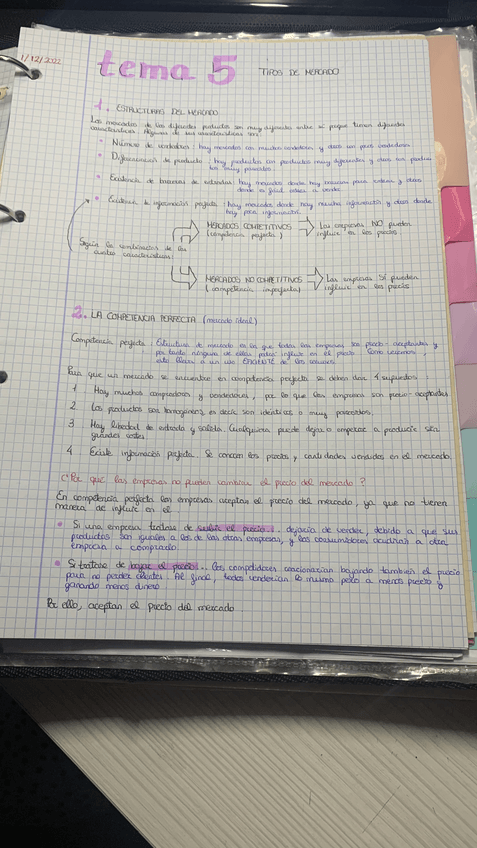 1/12/2022
tema 5 TIPOS DE MERCADO
1. ESTRUCTURAS DEL MERCADO
Los mercados de los diferentes productos son muy diferentes entre sí porque tienen diferentes
características. Algunas de sus características son:
• Número de vendedores: hay mercados con muchos vendedores y otros con pocos vendedores
• Diferenciación de producto: hay productos con productos muy diferentes y otros con productos
muy parecidos
• Existencia de barreras de entrada: hay mercados donde hay barreras para entrar y otros
donde es fácil entrar a vender
• Existencia de información perfecta: hay mercados donde hay mucha información y otros donde
hay poca información.
Según la combinación de las
cuatro características:
MERCADOS COMPETITIVOS
(competencia perfecta)
Las empresas NO pueden
influir en los precios
MERCADOS NO COMPETITIVOS
(competencia imperfecta)
Las empresas SÍ pueden
influir en los precios
2. LA COMPETENCIA PERFECTA (mercado ideal)
Competencia perfecta: Estructura de mercado en la que todas las empresas son precio-aceptantes y
por tanto ninguna de ellas puede influir en el precio. Como veremos,
esto lleva a un uso EFICIENTE de los recursos.
Para que un mercado se encuentre en competencia perfecta se deben dar 4 supuestos
1 Hay muchos compradores y vendedores, por lo que las empresas son precio-aceptantes
2 Los productos son homogéneos, es decir son idénticos o muy parecidos.
3 Hay libertad de entrada y salida. Cualquiera puede dejar o empezar a producir sin
grandes costes
4 Existe información perfecta. Se conocen los precios y cantidades vendidas en el mercado.
¿Por qué las empresas no pueden cambiar el precio del mercado?
En competencia perfecta las empresas aceptan el precio del mercado, ya que no tienen
manera de influir en él
• Si una empresa tratase de subir el precio..., dejaría de vender, debido a que sus
productos son iguales a los de las otras empresas, y los consumidores acudirían a otra
empresa a comprarlo
• Si tratase de bajar el precio... los competidores reaccionarían bajando también el precio
para no perder clientes. Al final, todos venderían lo mismo pero a menos precio y
ganando menos dinero
Por ello, aceptan el precio del mercado